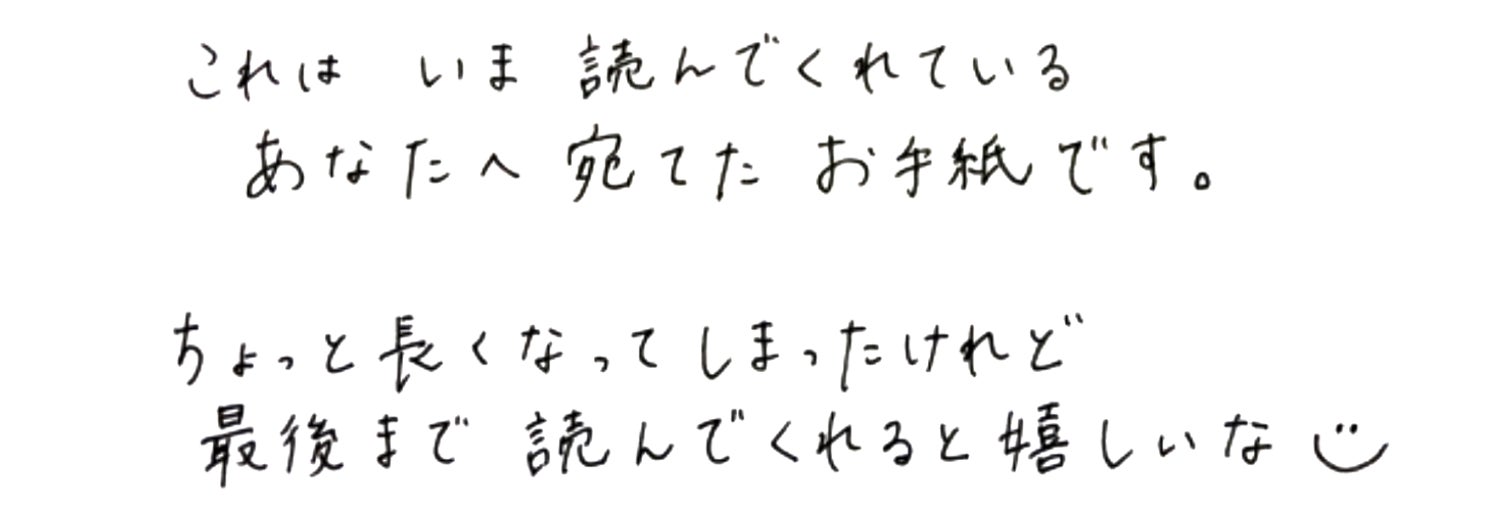 これは いま 読んでくれている
あなたへ 宛てた お手紙です。
ちょっと長くなってしまったけれど
最後まで 読んでくれると嬉しいな